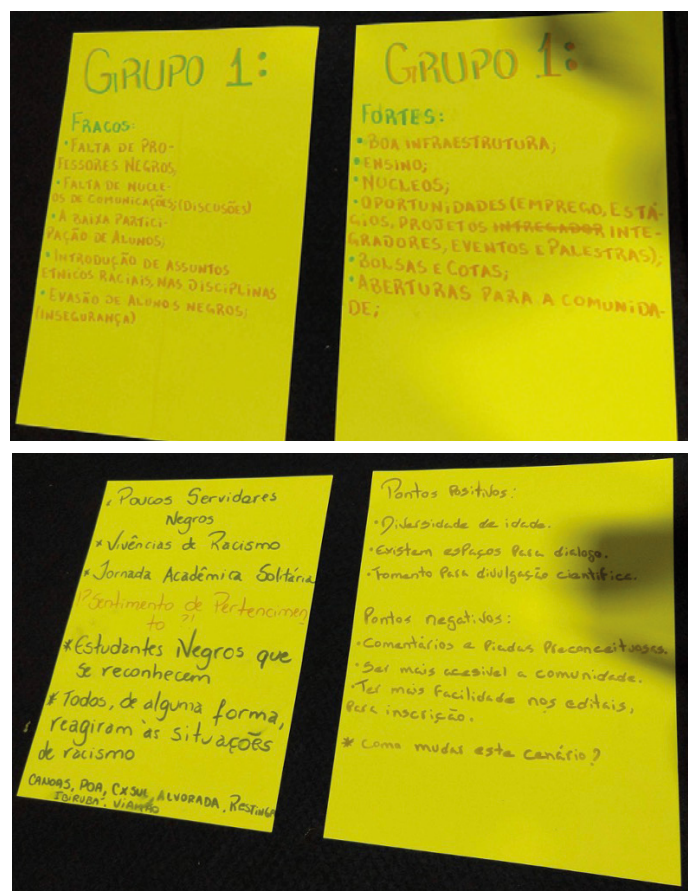 GRUPO 1:
FRACOS:
• FALTA DE PRO-
FESSORES NEGROS;
• FALTA DE NUCLE-
OS DE COMUNICAÇÕES; (DISCUSÕES)
• A BAIXA PARTICI-
PAÇÃO DE ALUNOS;
• INTRODUÇÃO DE ASSUNTOS
ETNICOS RACIAIS, NAS DISCIPLINAS
• EVASÃO DE ALUNOS NEGROS;
(INSEGURANÇA)
GRUPO 1:
FORTES:
• BOA INFRAESTRUTURA;
• ENSINO;
• NUCLEOS;
• OPORTUNIDADES (EMPREGO, ESTÁ-
GIOS, PROJETOS INTREGADOR INTE-
GRADORES, EVENTOS E PALESTRAS);
• BOLSAS E COTAS;
• ABERTURAS PARA A COMUNIDA-
DE;
• Poucos Servidores
Negros
* Vivências de Racismo
* Jornada Acadêmica Solitária
!? Sentimento de Pertencimen
to ?!
* Estudantes Negros que
se reconhecem
* Todos, de alguma forma,
reagiram às situações
de racismo
CANOAS, POA, CXSUL, ALVORADA, RESTINGA
IBIRUBÁ, VIAMÃO
Pontos Positivos:
• Diversidade de idade.
• Existem espaços Para dialogo.
• Fomento Para divulgação cientifica.
Pontos negativos:
• Comentários e Piadas Preconceituosas.
• Ser mais acesivel a comunidade.
• Ter mais facilidade nos editais,
Para inscrição.
* Como mudar este cenário?